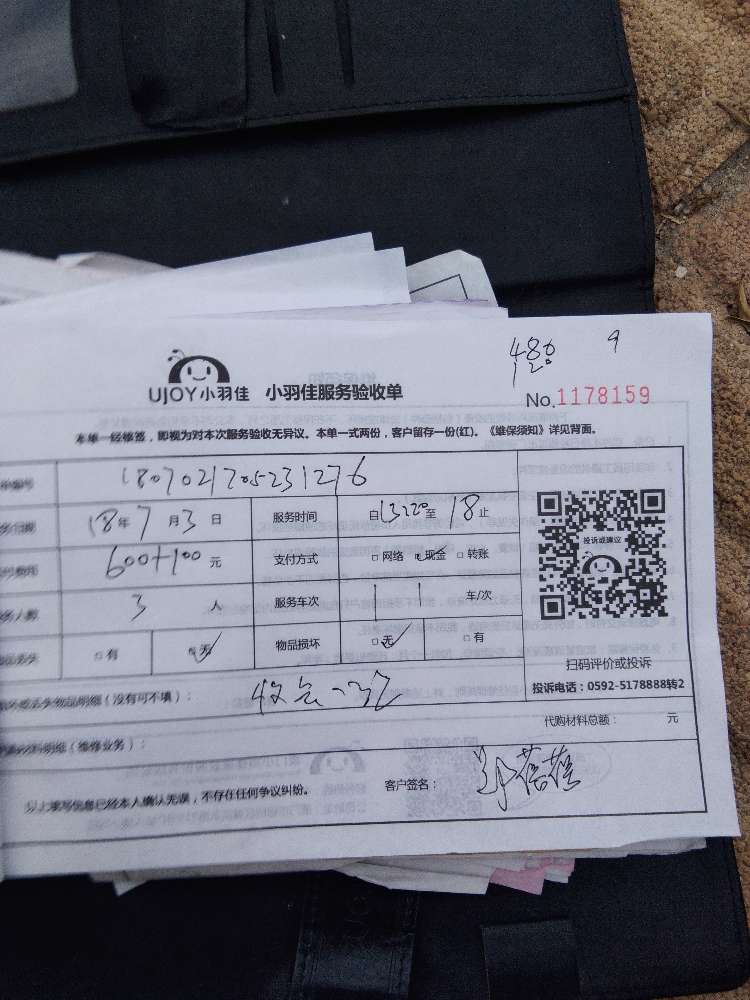 480 9
120
UJOY小羽佳 小羽佳服务验收单
No.1178159
本单一经修签，即视为对本次服务验收无异议。本单一式两份，客户留存一份(红)。《维保须知》详见背面。
编号 1807021705231276
日期 18年7月3日 服务时间 自13:20至18止
费用 600+100元 支付方式 □网络 □现金 □转账
人数 3人 服务车次 车/次
丢失 □有 □无 物品损坏 □无 □有
投诉或建议
扫码评价或投诉
投诉电话：0592-5178888转2
丢失物品明细（没有可不填）：
代购材料总额： 元
材料明细（维修业务）：
以上填写信息已经本人确认无误，不存在任何争议纠纷。 客户签名：